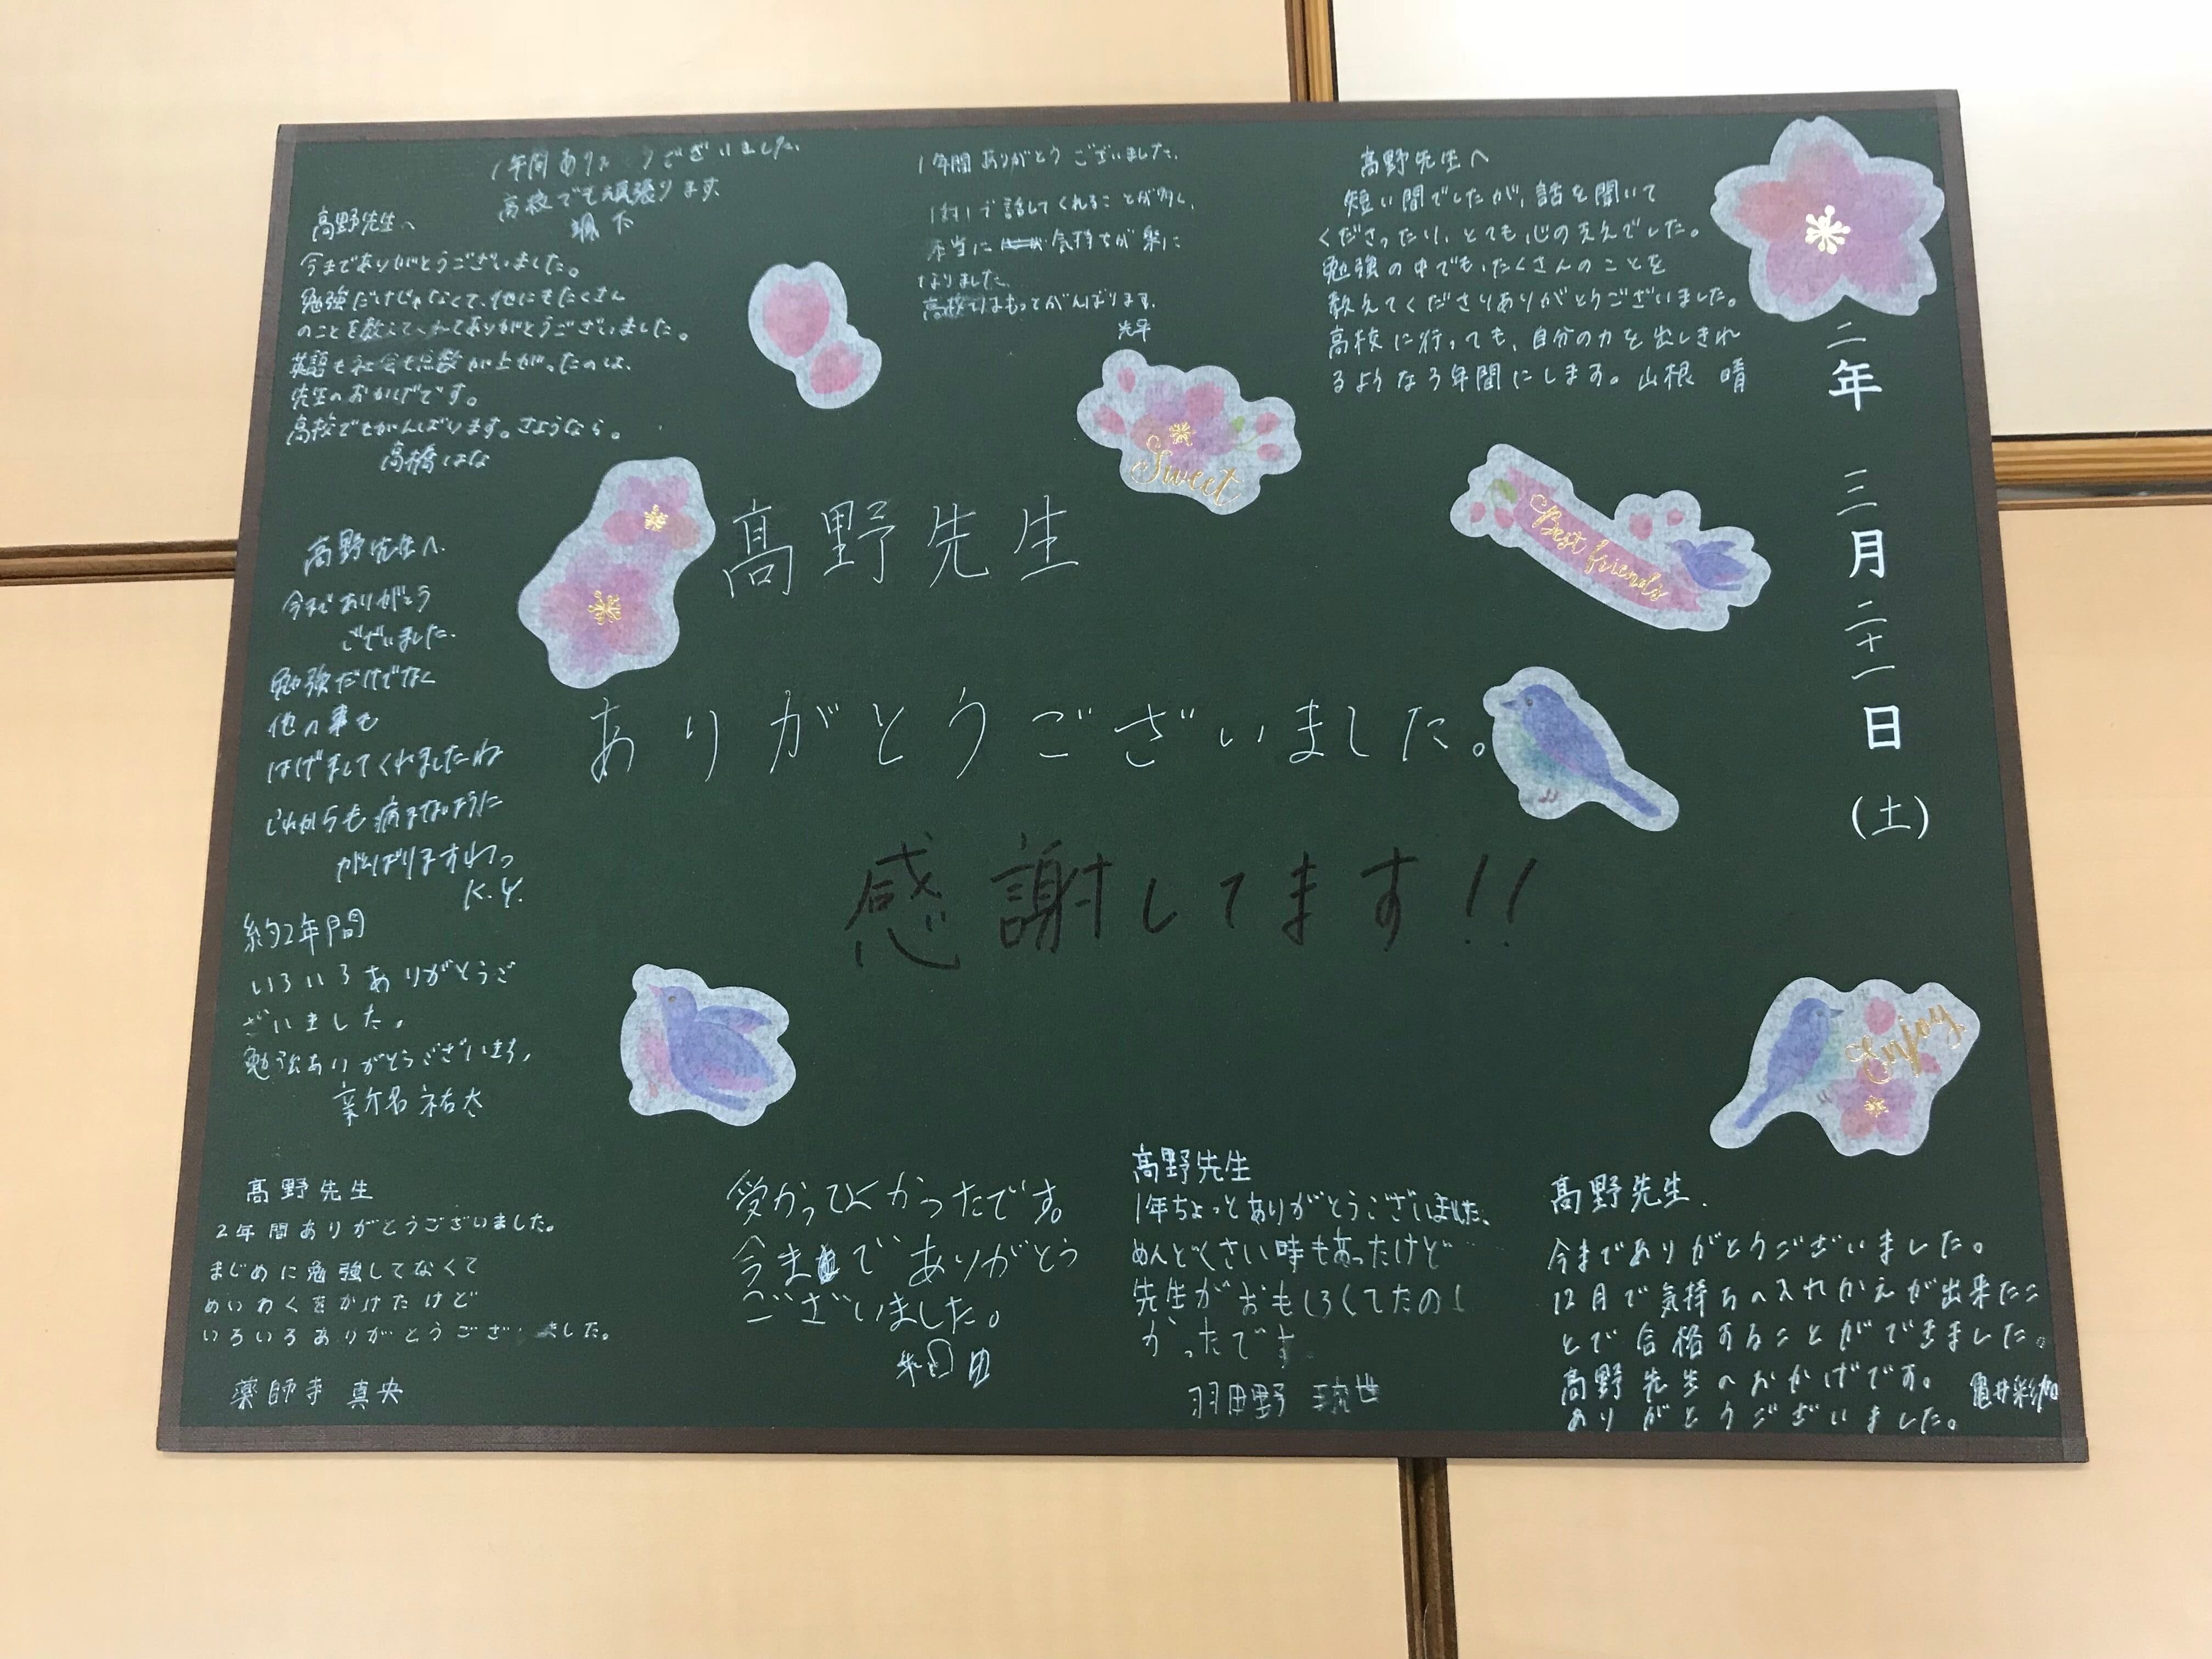 1年間ありがとうございました。
高校でも頑張ります。
颯下
高野先生へ
今までありがとうございました。
勉強だけじゃなくて、他にもたくさん
のことを教えてくれてありがとうございました。
英語も社会も点数が上がったのは、
先生のおかげです。
高校でもがんばります。さようなら。
高橋はな
1年間ありがとうございました。
1対1で話してくれることが多く、
本当に 気持ちが楽に
なりました。
高校ではもっとがんばります。
光平
高野先生へ
短い間でしたが、話を聞いて
くださったり、とても心の支えでした。
勉強の中でも、たくさんのことを
教えてくださりありがとうございました。
高校に行っても、自分の力を出しきれ
るような3年間にします。山根 晴
二年 三月二十一日(土)
Sweet
Best friends
髙野先生
ありがとうございました。
感謝してます!!
高野先生へ
今までありがとう
ございました。
勉強だけでなく
他の事も
はげましてくれましたね
これからも病まないように
がんばりますわっ
K.Y.
約2年間
いろいろありがとうご
ざいました。
勉強ありがとうございます。
祐太
Enjoy
髙野先生
2年間ありがとうございました。
まじめに勉強してなくて
めいわくをかけたけど
いろいろありがとうございました。
薬師寺 真央
受かってよかったです。
今までありがとう
ございました。
髙野先生
1年ちょっとありがとうございました。
めんどくさい時もあったけど
先生がおもしろくてたのし
かったです
羽田野 琉世
髙野先生.
今までありがとうございました。
12月で気持ちの入れかえが出来たこ
とで合格することができました。
髙野先生のおかげです。
ありがとうございました。
亀井彩加